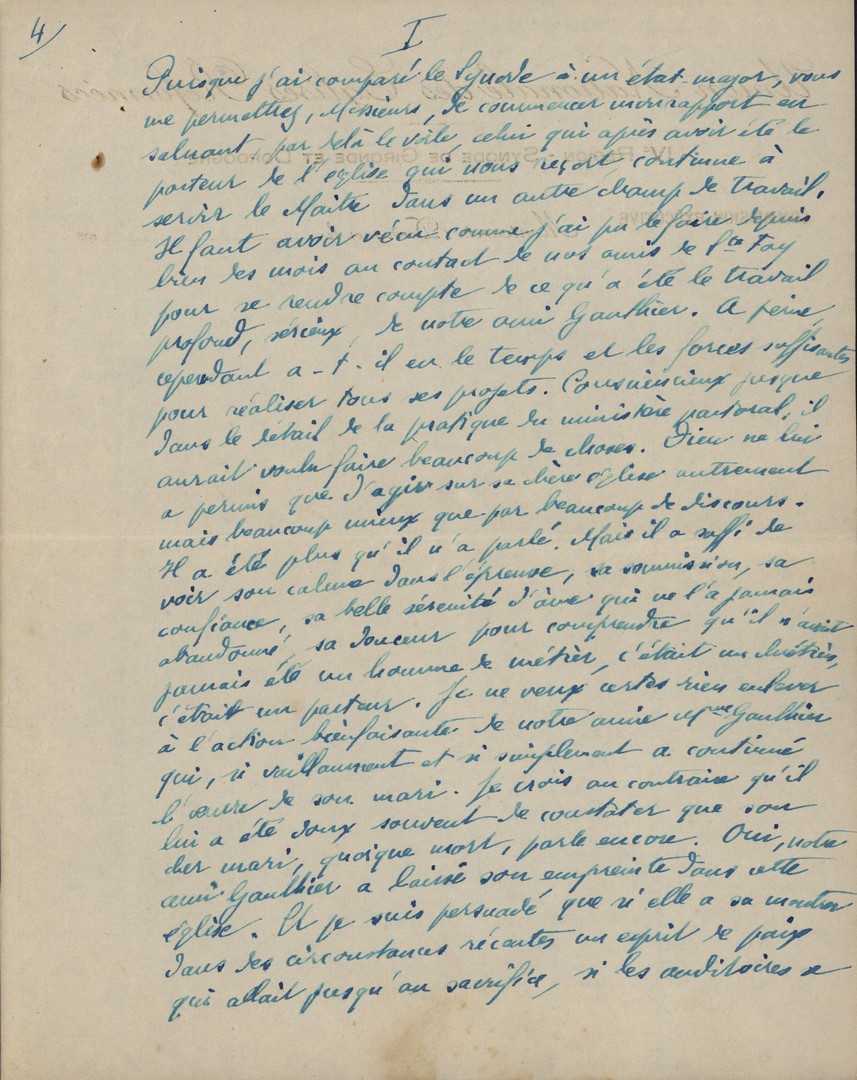 4
I
Puisque j'ai comparé le Synode à un état-major, vous
me permettrez, Messieurs, de commencer mon rapport en
saluant, par delà le voile, celui qui après avoir été le
pasteur de l'église qui nous reçoit, continue à
servir le Maître dans un autre champ de travail.
Il faut avoir vécu comme j'ai pu le faire depuis
bien des mois au contact de nos amis de Ste Foy
pour se rendre compte de ce qu'a été le travail
profond, sérieux, de notre ami Gauthier. A peine,
cependant a-t-il eu le temps et les forces suffisantes
pour réaliser tous ses projets. Consciencieux jusque
dans le détail de la pratique du ministère pastoral, il
aurait voulu faire beaucoup de choses. Dieu ne lui
a permis que d'agir sur sa chère église autrement
mais beaucoup mieux que par beaucoup de discours.
Il a été plus qu'il n'a parlé. Mais il a suffi de
voir son calme dans l'épreuve, sa soumission, sa
confiance, sa belle sérénité d'âme qui ne l'a jamais
abandonné, sa douceur pour comprendre qu'il n'avait
jamais été un homme de métier, c'était un chrétien,
c'était un pasteur. Je ne veux certes rien enlever
à l'action bienfaisante de notre amie Mme Gauthier
qui, si vaillamment et si simplement a continué
l'œuvre de son mari. Je crois au contraire qu'il
lui a été doux souvent de constater que son
cher mari, quoique mort, parle encore. Oui, notre
ami Gauthier a laissé son empreinte dans cette
église. Et je suis persuadé que si elle a su montrer
dans des circonstances récentes un esprit de paix
qui allait jusqu'au sacrifice, si les auditoires se
IVe RÉGION - SYNODE DE GIRONDE ET DORDOGNE